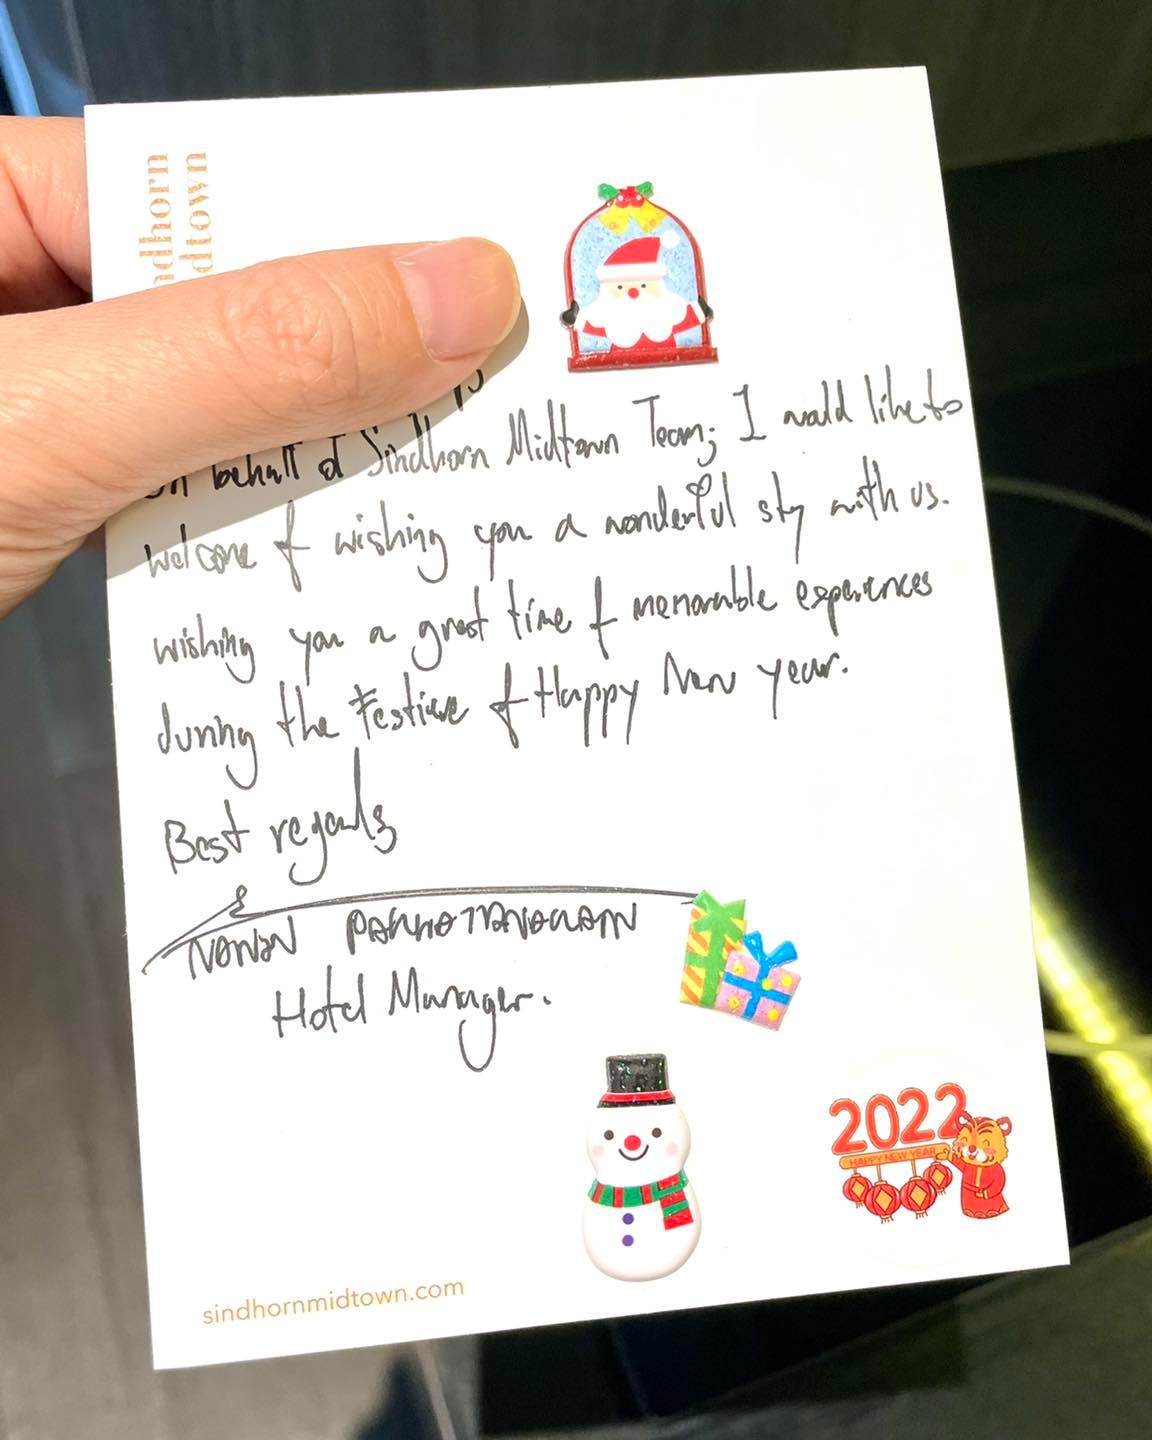 ndhorn
dtown
On behalf of Sindhorn Midtown Team; I would like to
welcome & wishing you a wonderful stay with us.
wishing you a great time & memorable experiences
during the Festive & Happy New year.
Best regards
Hotel Manager.
2022
HAPPY NEW YEAR
sindhornmidtown.com